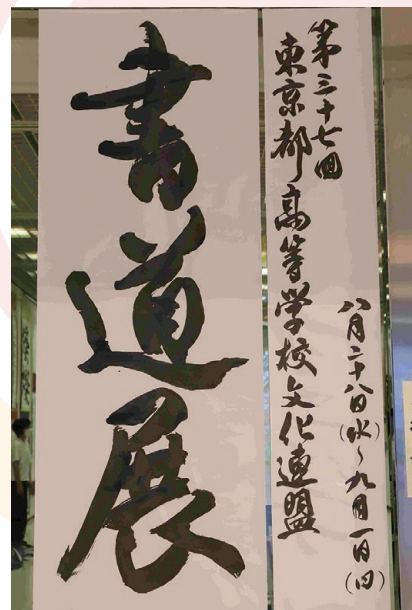 第三十七回
東京都高等学校文化連盟
八月二十八日(水)～九月一日(日)
書道展